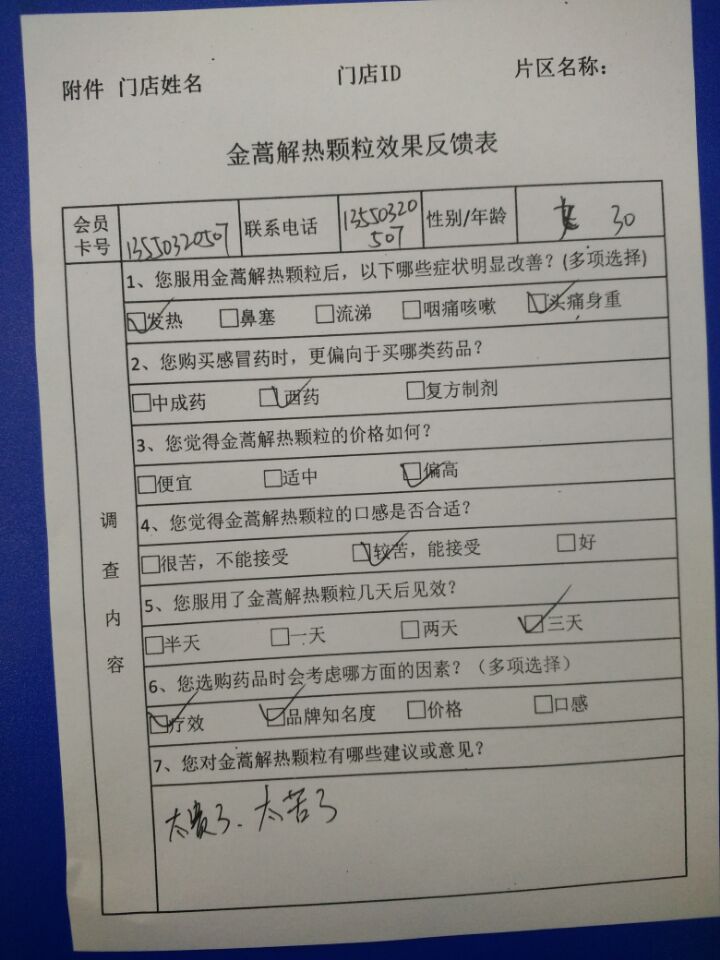 附件 门店姓名 门店ID 片区名称：
金蒿解热颗粒效果反馈表
会员卡号 13550320507 联系电话 13550320507 性别/年龄 女 30
1、您服用金蒿解热颗粒后，以下哪些症状明显改善？(多项选择)
☑发热 □鼻塞 □流涕 □咽痛咳嗽 ☑头痛身重
2、您购买感冒药时，更偏向于买哪类药品？
□中成药 ☑西药 □复方制剂
3、您觉得金蒿解热颗粒的价格如何？
□便宜 □适中 ☑偏高
调查内容
4、您觉得金蒿解热颗粒的口感是否合适？
□很苦，不能接受 ☑较苦，能接受 □好
5、您服用了金蒿解热颗粒几天后见效？
□半天 □一天 □两天 ☑三天
6、您选购药品时会考虑哪方面的因素？（多项选择）
☑疗效 ☑品牌知名度 □价格 □口感
7、您对金蒿解热颗粒有哪些建议或意见？
太贵了、太苦了